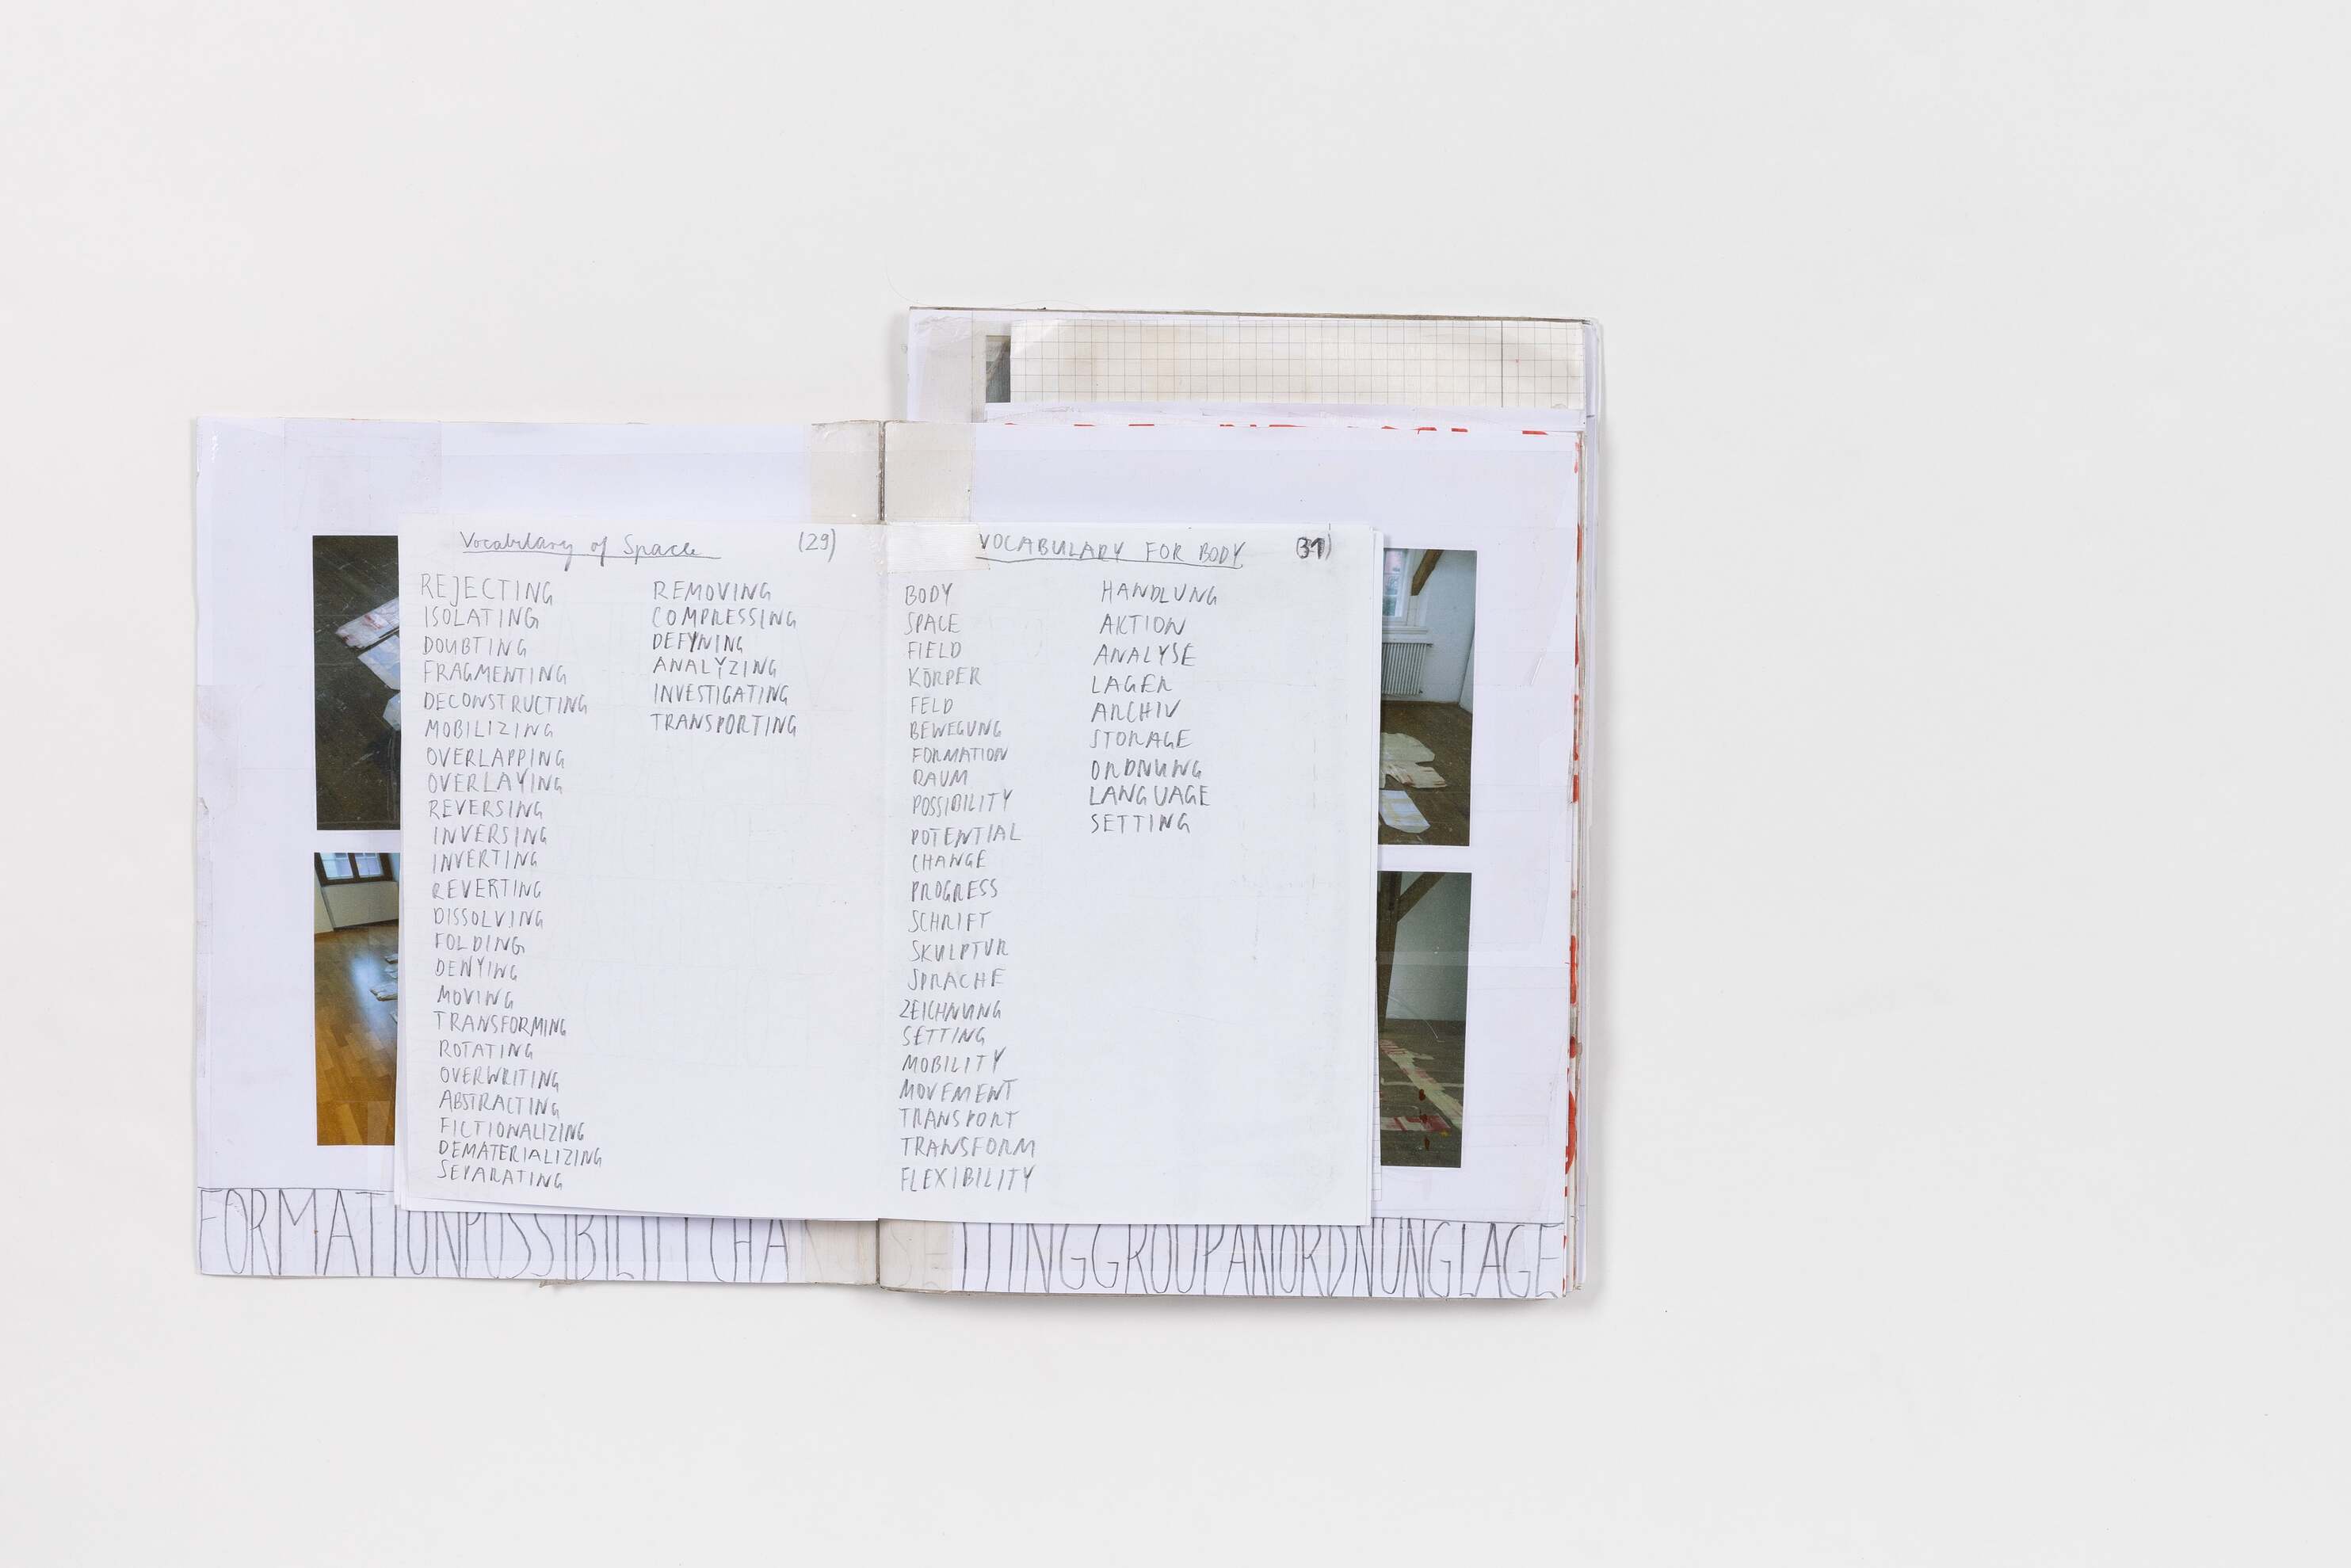 Vocabulary of Space (29)
REJECTING
ISOLATING
DOUBTING
FRAGMENTING
DECONSTRUCTING
MOBILIZING
OVERLAPPING
OVERLAYING
REVERSING
INVERSING
INVERTING
REVERTING
DISSOLVING
FOLDING
DENYING
MOVING
TRANSFORMING
ROTATING
OVERWRITING
ABSTRACTING
FICTIONALIZING
DEMATERIALIZING
SEPARATING
REMOVING
COMPRESSING
DEFYNING
ANALYZING
INVESTIGATING
TRANSPORTING
VOCABULARY FOR BODY (31)
BODY
SPACE
FIELD
KÖRPER
FELD
BEWEGUNG
FORMATION
RAUM
POSSIBILITY
POTENTIAL
CHANGE
PROGRESS
SCHRIFT
SKULPTUR
SPRACHE
ZEICHNUNG
SETTING
MOBILITY
MOVEMENT
TRANSPORT
TRANSFORM
FLEXIBILITY
HANDLUNG
AKTION
ANALYSE
LAGER
ARCHIV
STORAGE
ORDNUNG
LANGUAGE
SETTING
FORMATIONPOSSIBILITYCHA
SETTINGGROUPANORDNUNGLAGE